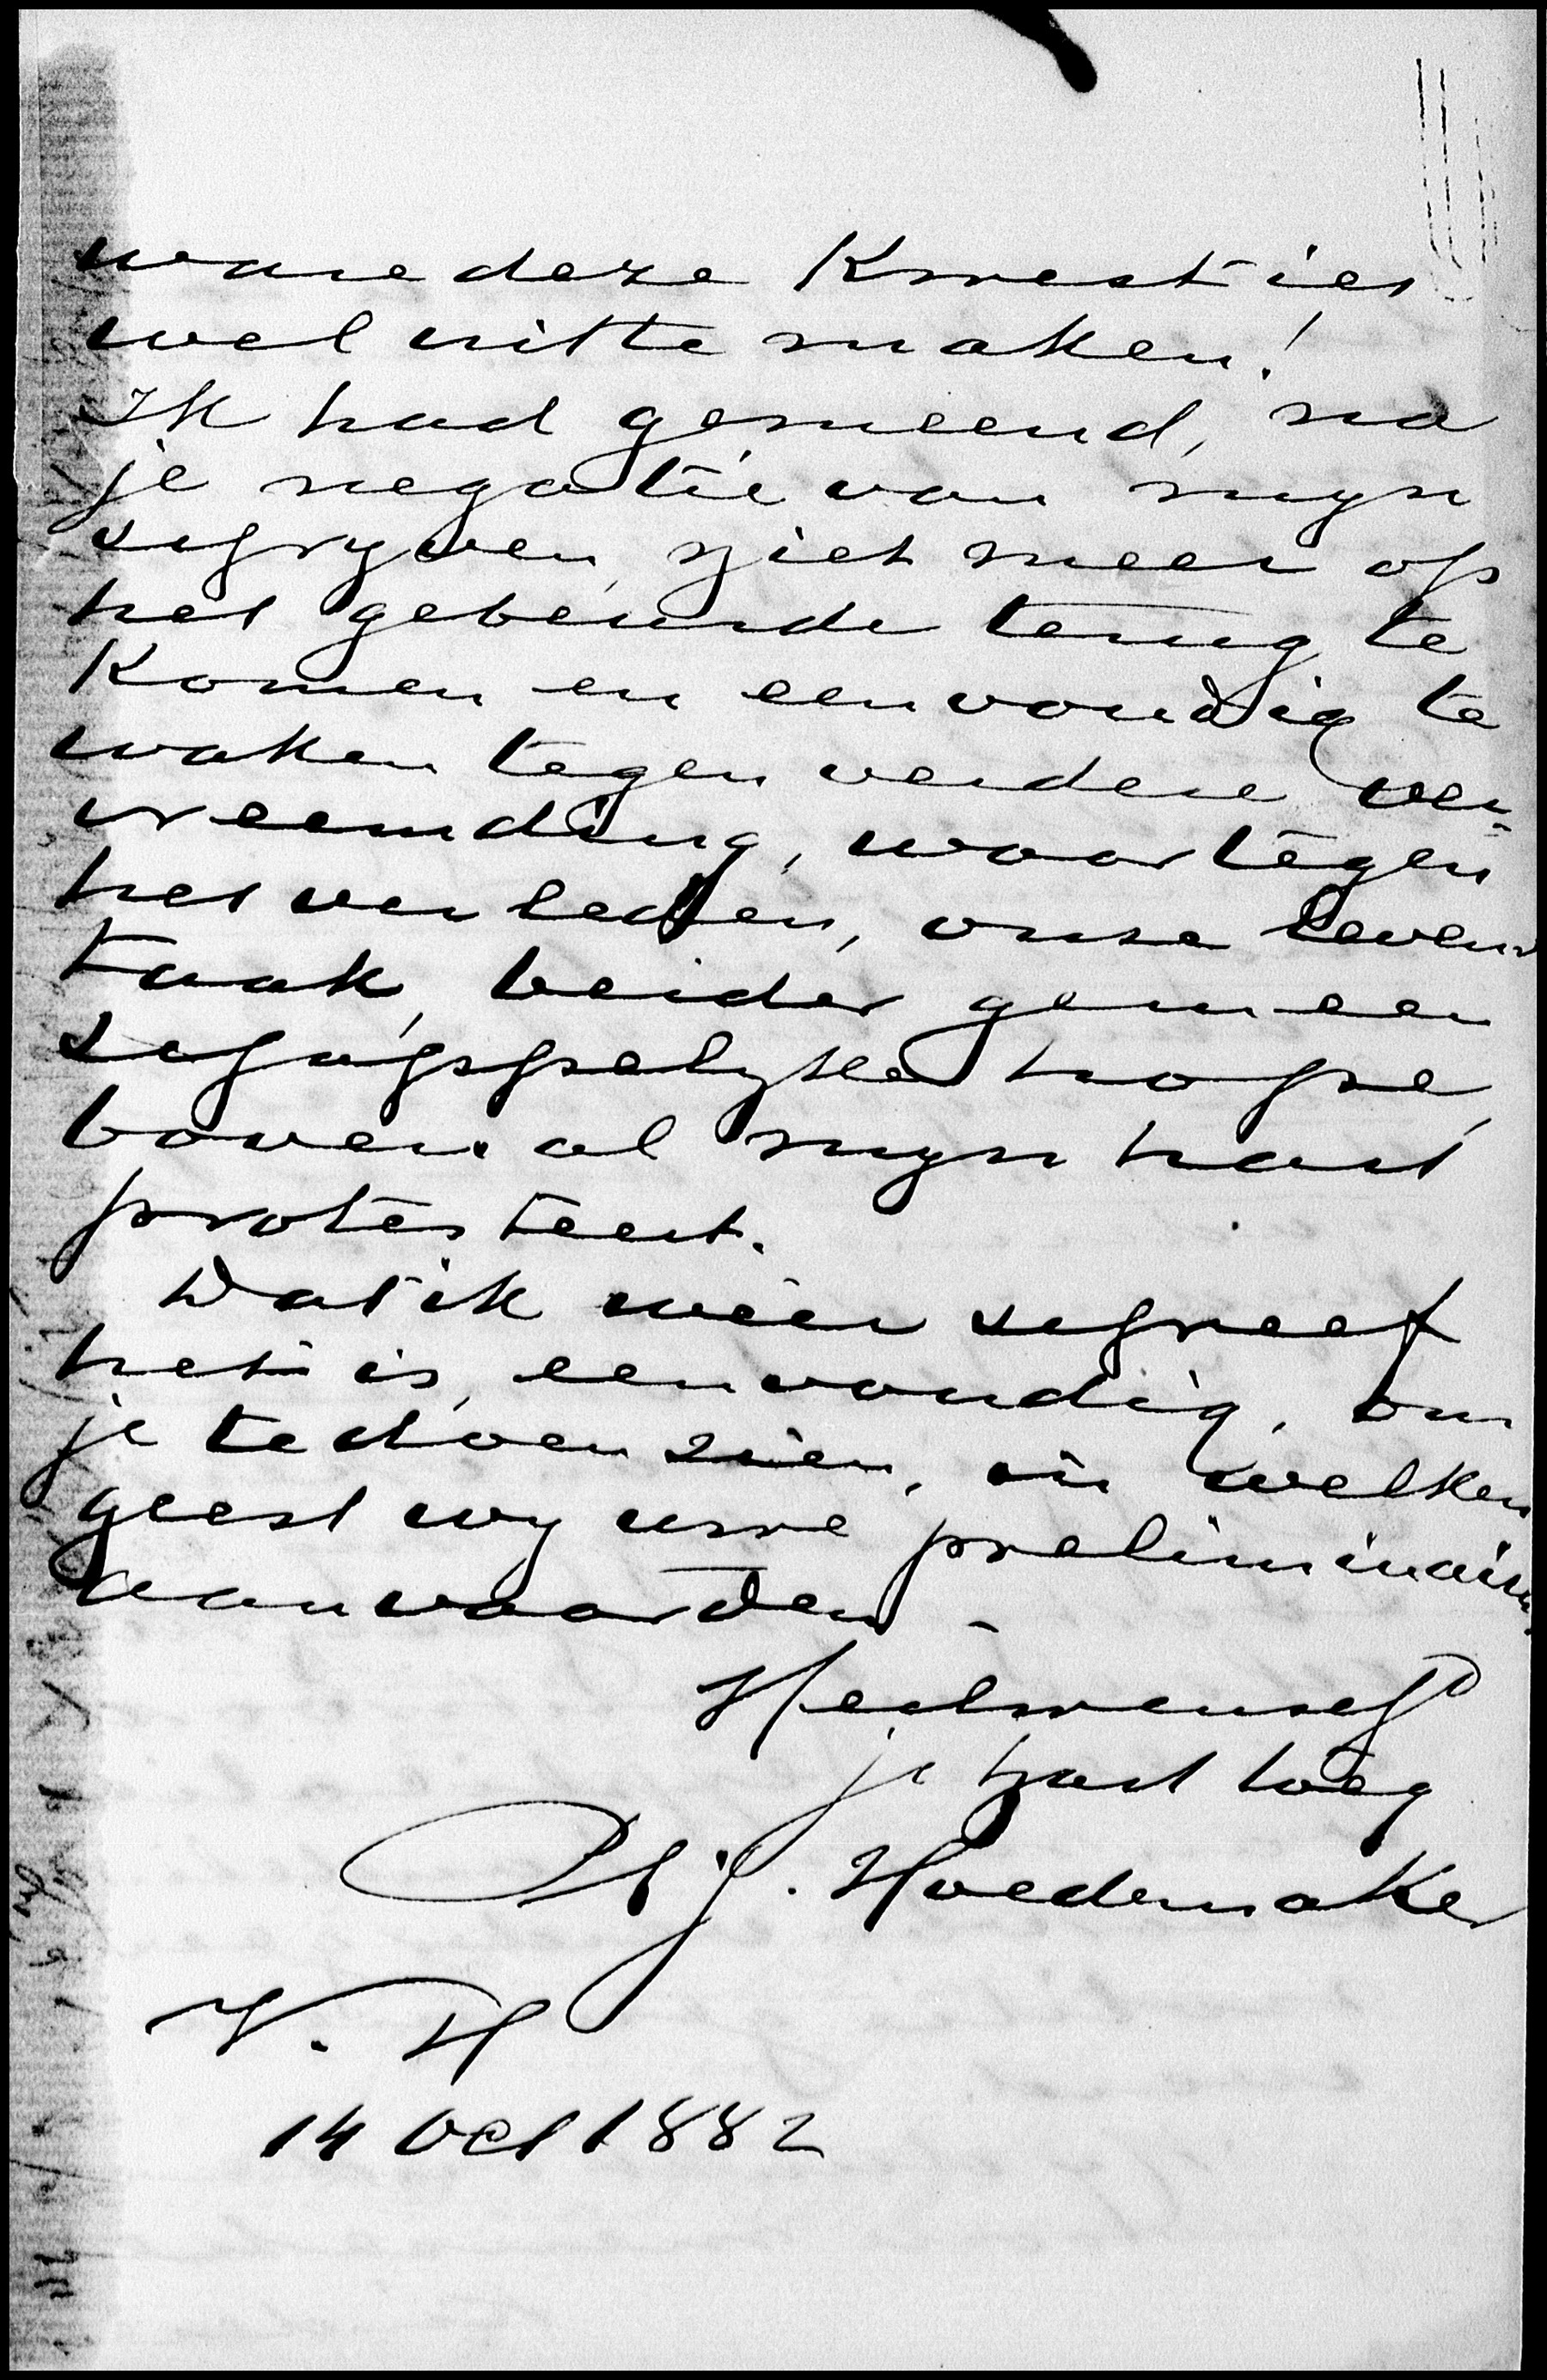 ware deze Kwesties
wel uit te maken!
Ik had gemeend, na
je negatie van myn
schryven, niet meer op
het gebeurde terug te
Komen en eenvoudig te
waken tegen verdere ver-
vreemding, waartegen
het verleden, onze levens
taak, beider gemeen
schappelyke hope,
bovenal myn hart
protesteert.
Dat ik weer schreef
het is, eenvoudig, om
je te doen zien, in welken
geest wy uwe preliminairen
aanvaarden.
Heilwensch
je hart toeg
Ph J. Hoedemaker
V. H
14 Oct 1882